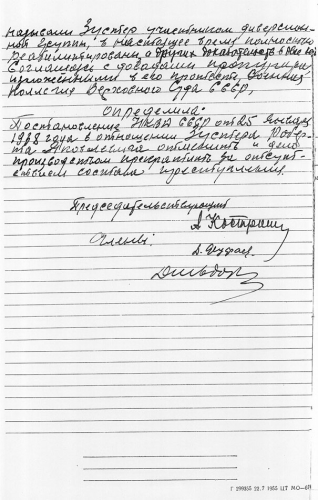 названный Зустер участником диверсион-
ной группы, в настоящее время полностью
реабилитирован, а других доказательств в деле нет
Соглашаясь с доводами прокурора
изложенными в его протесте, Военная
Коллегия Верховного Суда СССР,
определила:
Постановление НКВД СССР от 25 января
1938 года в отношении Зустера Робер-
та Яковлевича отменить и дело
производством прекратить за отсут-
ствием состава преступления.
Председательствующий
А. Костромин
Члены:
Г 299355 22.7 1955 ЦТ МО—